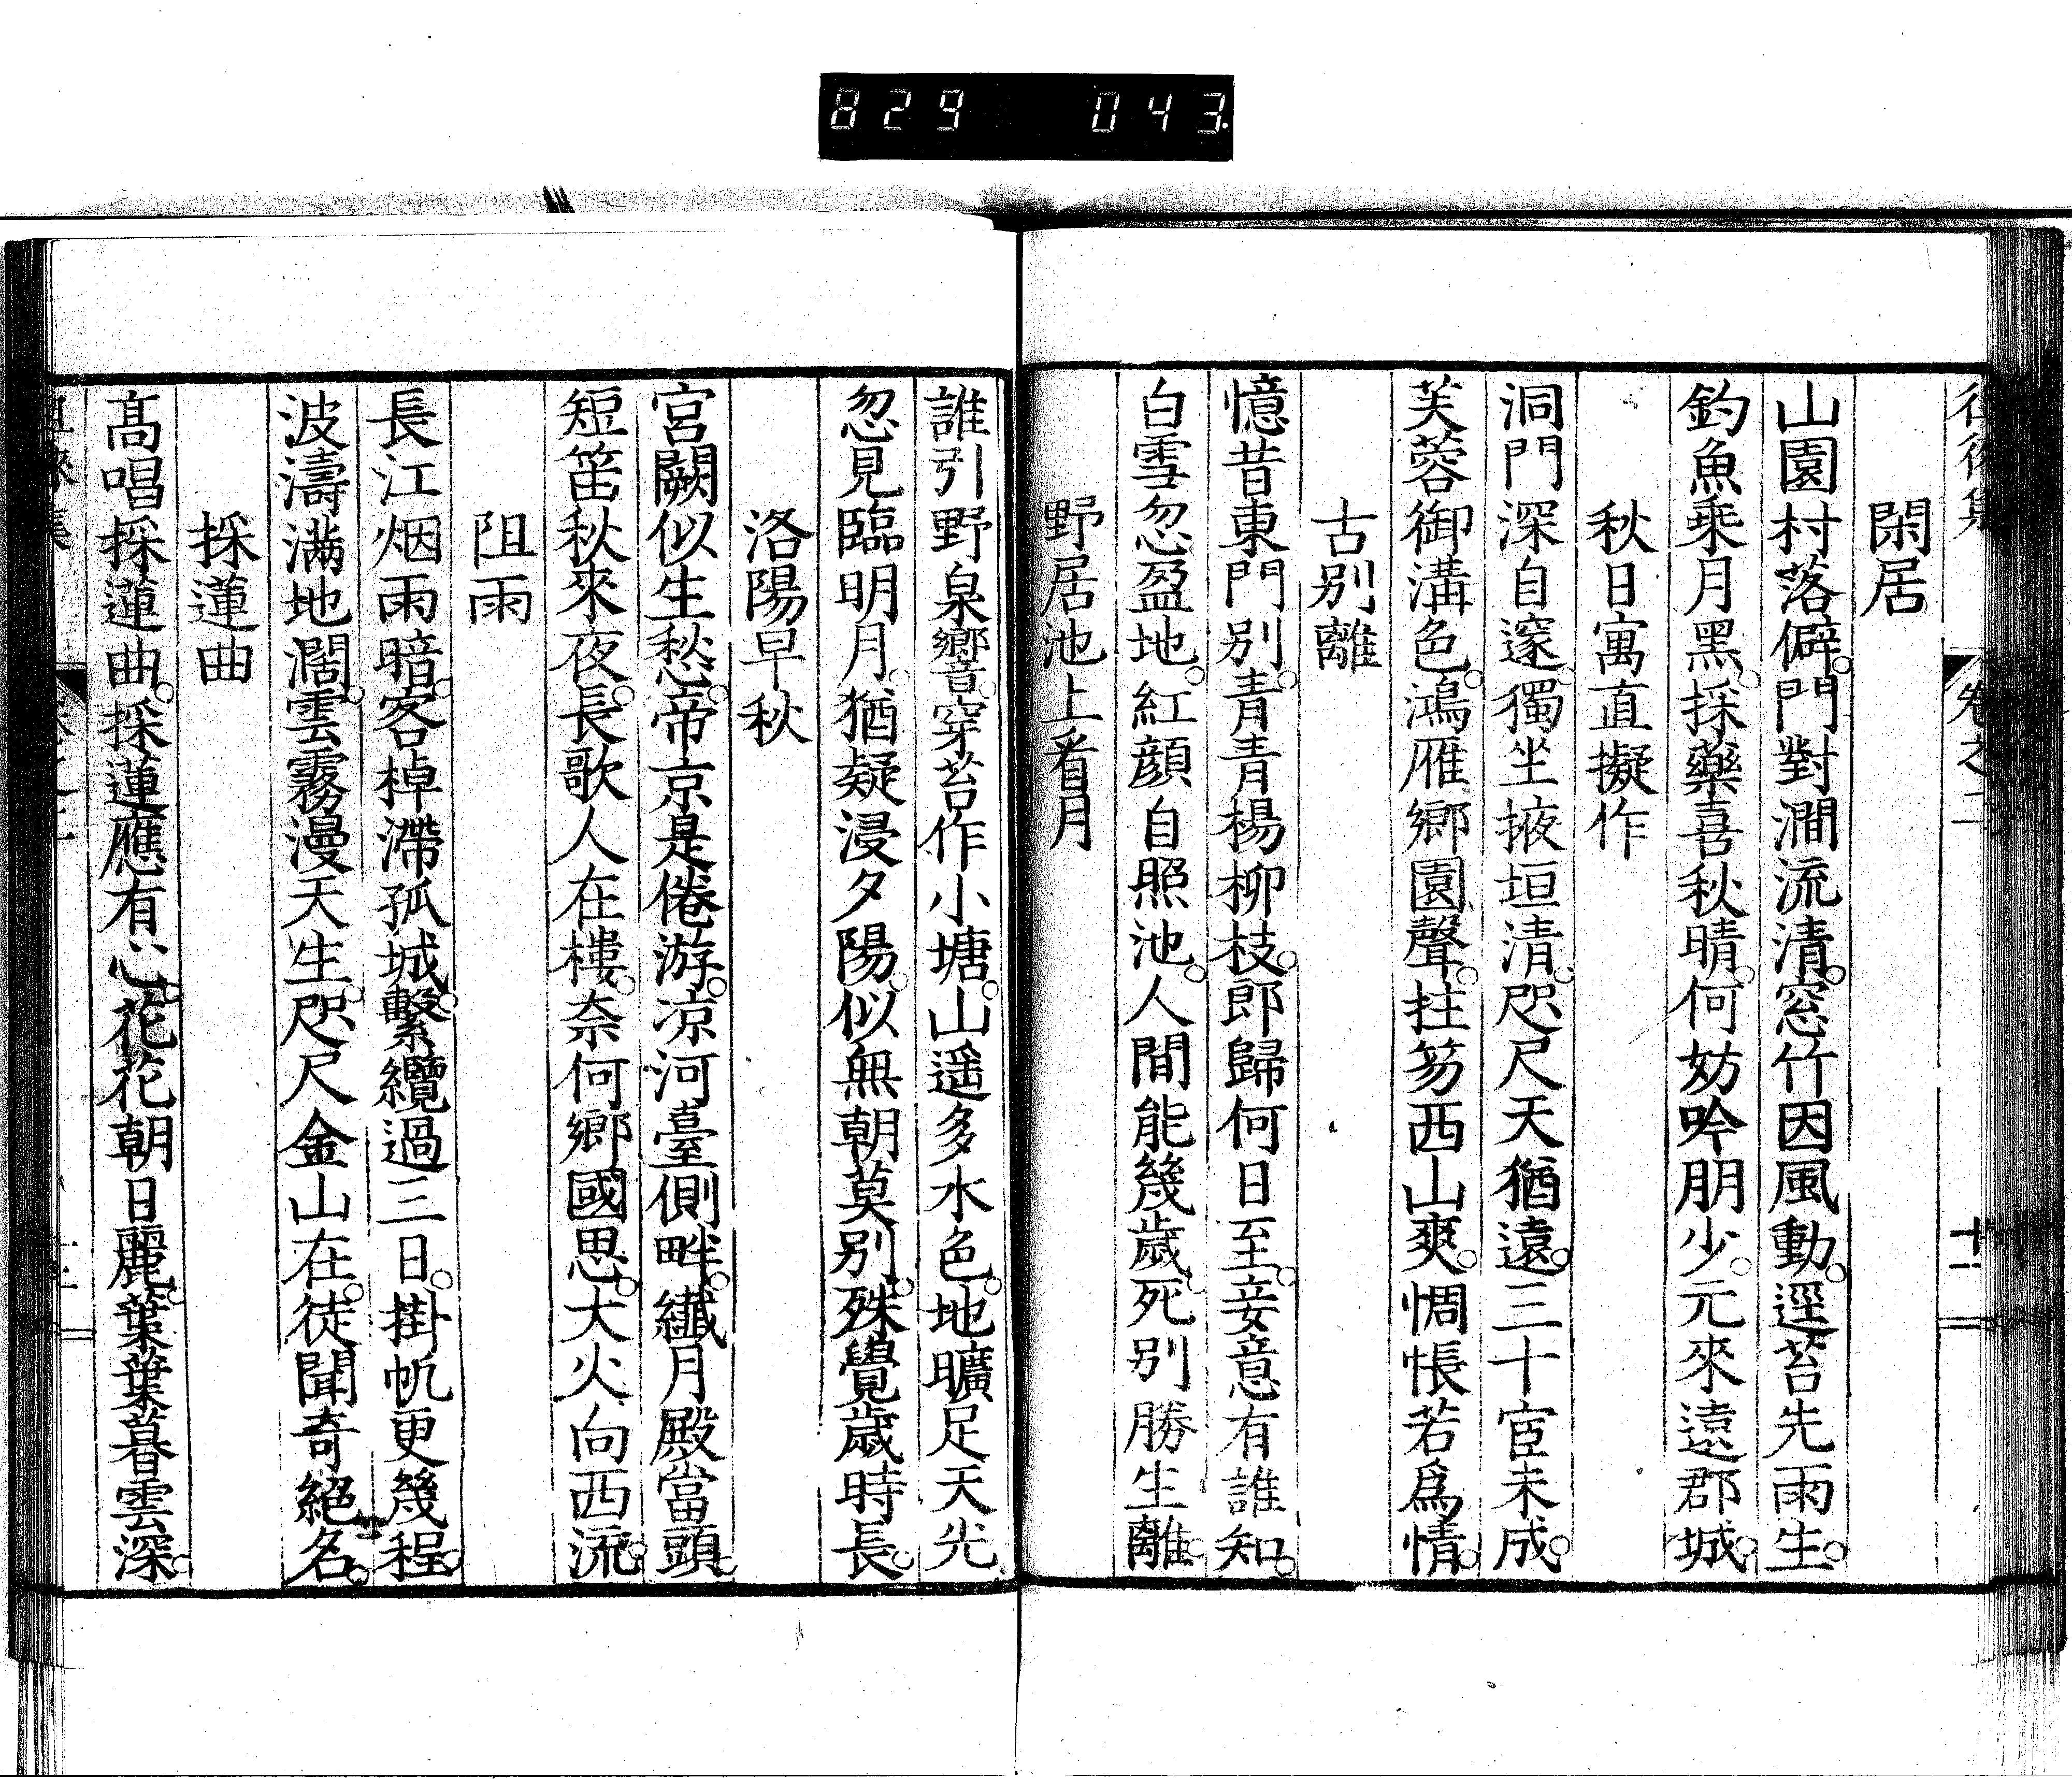 829 043
閑居
山園村落僻。門對澗流清。窓竹因風動。逕苔先雨生。
釣魚乘月黑。採藥喜秋晴。何妨吟朋少。元來遠郡城。
秋日寓直擬作
洞門深自邃。獨坐掖垣清。咫尺天猶遠。三十宦未成。
芙蓉御溝色。鴻雁鄉園聲。拄笏西山爽。惆悵若爲情。
古別離
憶昔東門別。青青楊柳枝。郎歸何日至。妾意有誰知。
白雪忽盈地。紅顔自照池。人間能幾歲。死別勝生離。
野居池上看月
誰引野泉響。穿苔作小塘。山遥多水色。地曠足天光
忽見臨明月。猶疑浸夕陽。似無朝莫別。殊覺歲時長。
洛陽早秋
宮闕似生愁。帝京是倦游。凉河臺側畔。纖月殿當頭。
短笛秋來夜。長歌人在樓。奈何鄉國思。大火向西流。
阻雨
長江烟雨暗。客棹滯孤城。繫纜過三日。掛帆更幾程。
波濤满地濶。雲霧漫天生。咫尺金山在。徒聞奇絕名。
採蓮曲
髙唱採蓮曲。採蓮應有心。花花朝日麗。葉葉暮雲深。